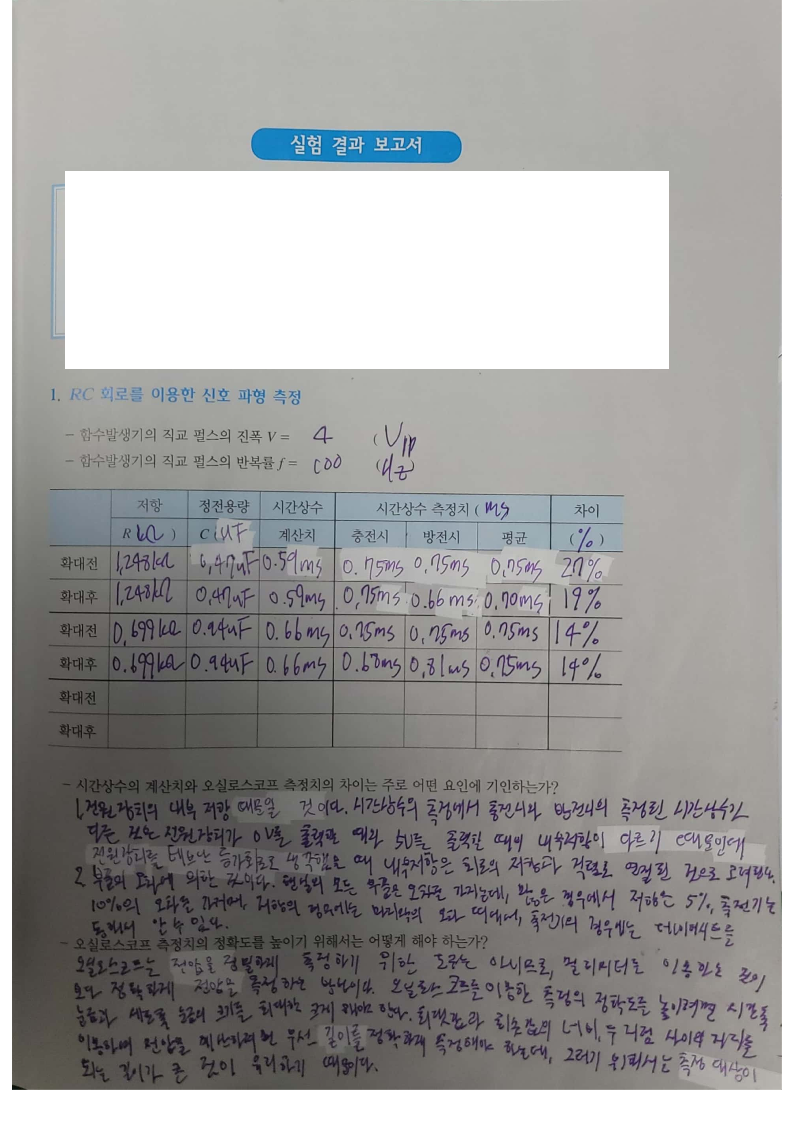 실험 결과 보고서
1. RC 회로를 이용한 신호 파형 측정
- 함수발생기의 직교 펄스의 진폭 V = 4 (Vpp
- 함수발생기의 직교 펄스의 반복률 f = 100 (Hz)
저항 정전용량 시간상수 시간상수 측정치 (ms 차이
R(kΩ) C(uF 계산치 충전시 방전시 평균 (%)
확대전 1.248kΩ 0.47uF 0.59ms 0.75ms 0.75ms 0.75ms 27%
확대후 1.248kΩ 0.47uF 0.59ms 0.75ms 0.66ms 0.70ms 19%
확대전 0.699kΩ 0.94uF 0.66ms 0.75ms 0.75ms 0.75ms 14%
확대후 0.699kΩ 0.94uF 0.66ms 0.68ms 0.81ms 0.75ms 14%
확대전
확대후
- 시간상수의 계산치와 오실로스코프 측정치의 차이는 주로 어떤 요인에 기인하는가?
1. 전원장치의 내부 저항 때문일 것이다. 시간상수의 측정에서 충전시와 방전시의 측정된 시간상수가
다른 것은 전원장치가 0V를 출력할 때와 5V를 출력할 때의 내부저항이 다르기 때문인데
전원장치를 테브난 등가회로로 생각했을 때 내부저항은 회로의 저항과 직렬로 연결된 것으로 고려된다.
2. 부품의 오차에 의한 것이다. 현실의 모든 부품은 오차를 가지는데, 많은 경우에서 저항은 5%, 축전기는
10%의 오차를 가지며, 저항의 경우에는 마지막의 오차 띠에서, 축전기의 경우에는 데이터시트를
통해서 알 수 있다.
- 오실로스코프 측정치의 정확도를 높이기 위해서는 어떻게 해야 하는가?
오실로스코프는 전압을 정밀하게 측정하기 위한 도구는 아니므로, 멀티미터를 이용하는 것이
보다 정확하게 전압을 측정하는 방법이다. 오실로스코프를 이용한 측정의 정확도를 높이려면 시간축
눈금과 세로축 눈금의 크기를 최대한 크게 해야 한다. 최댓값과 최솟값의 너비, 두 지점 사이의 거리를
이용하여 전압을 계산하려면 우선 길이를 정확하게 측정해야 하는데, 그러기 위해서는 측정 대상이
되는 길이가 큰 것이 유리하기 때문이다.